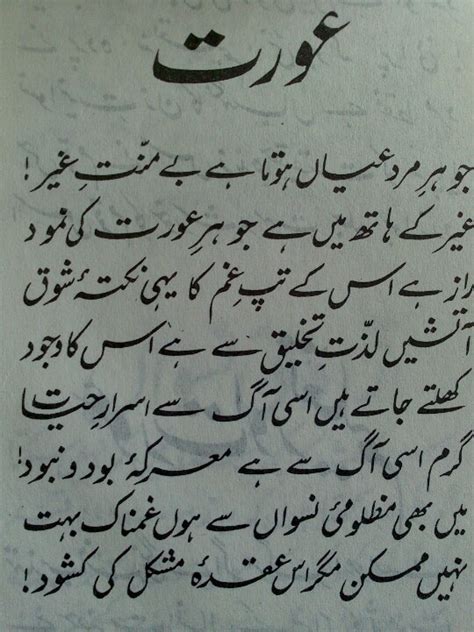 عورت
جوہرِ مرد عیاں ہوتا ہے بے منّتِ غیر!
غیر کے ہاتھ میں ہے جوہرِ عورت کی نمود
راز ہے اس کے تپِ غم کا یہی نکتۂ شوق
آتشیں لذّتِ تخلیق سے ہے اس کا وجود
کھلتے جاتے ہیں اسی آگ سے اسرارِ حیات
گرم اسی آگ سے ہے معرکۂ بود و نبود!
میں بھی مظلومیٔ نسواں سے ہوں غمناک بہت
نہیں ممکن مگر اس عقدۂ مشکل کی کشود!